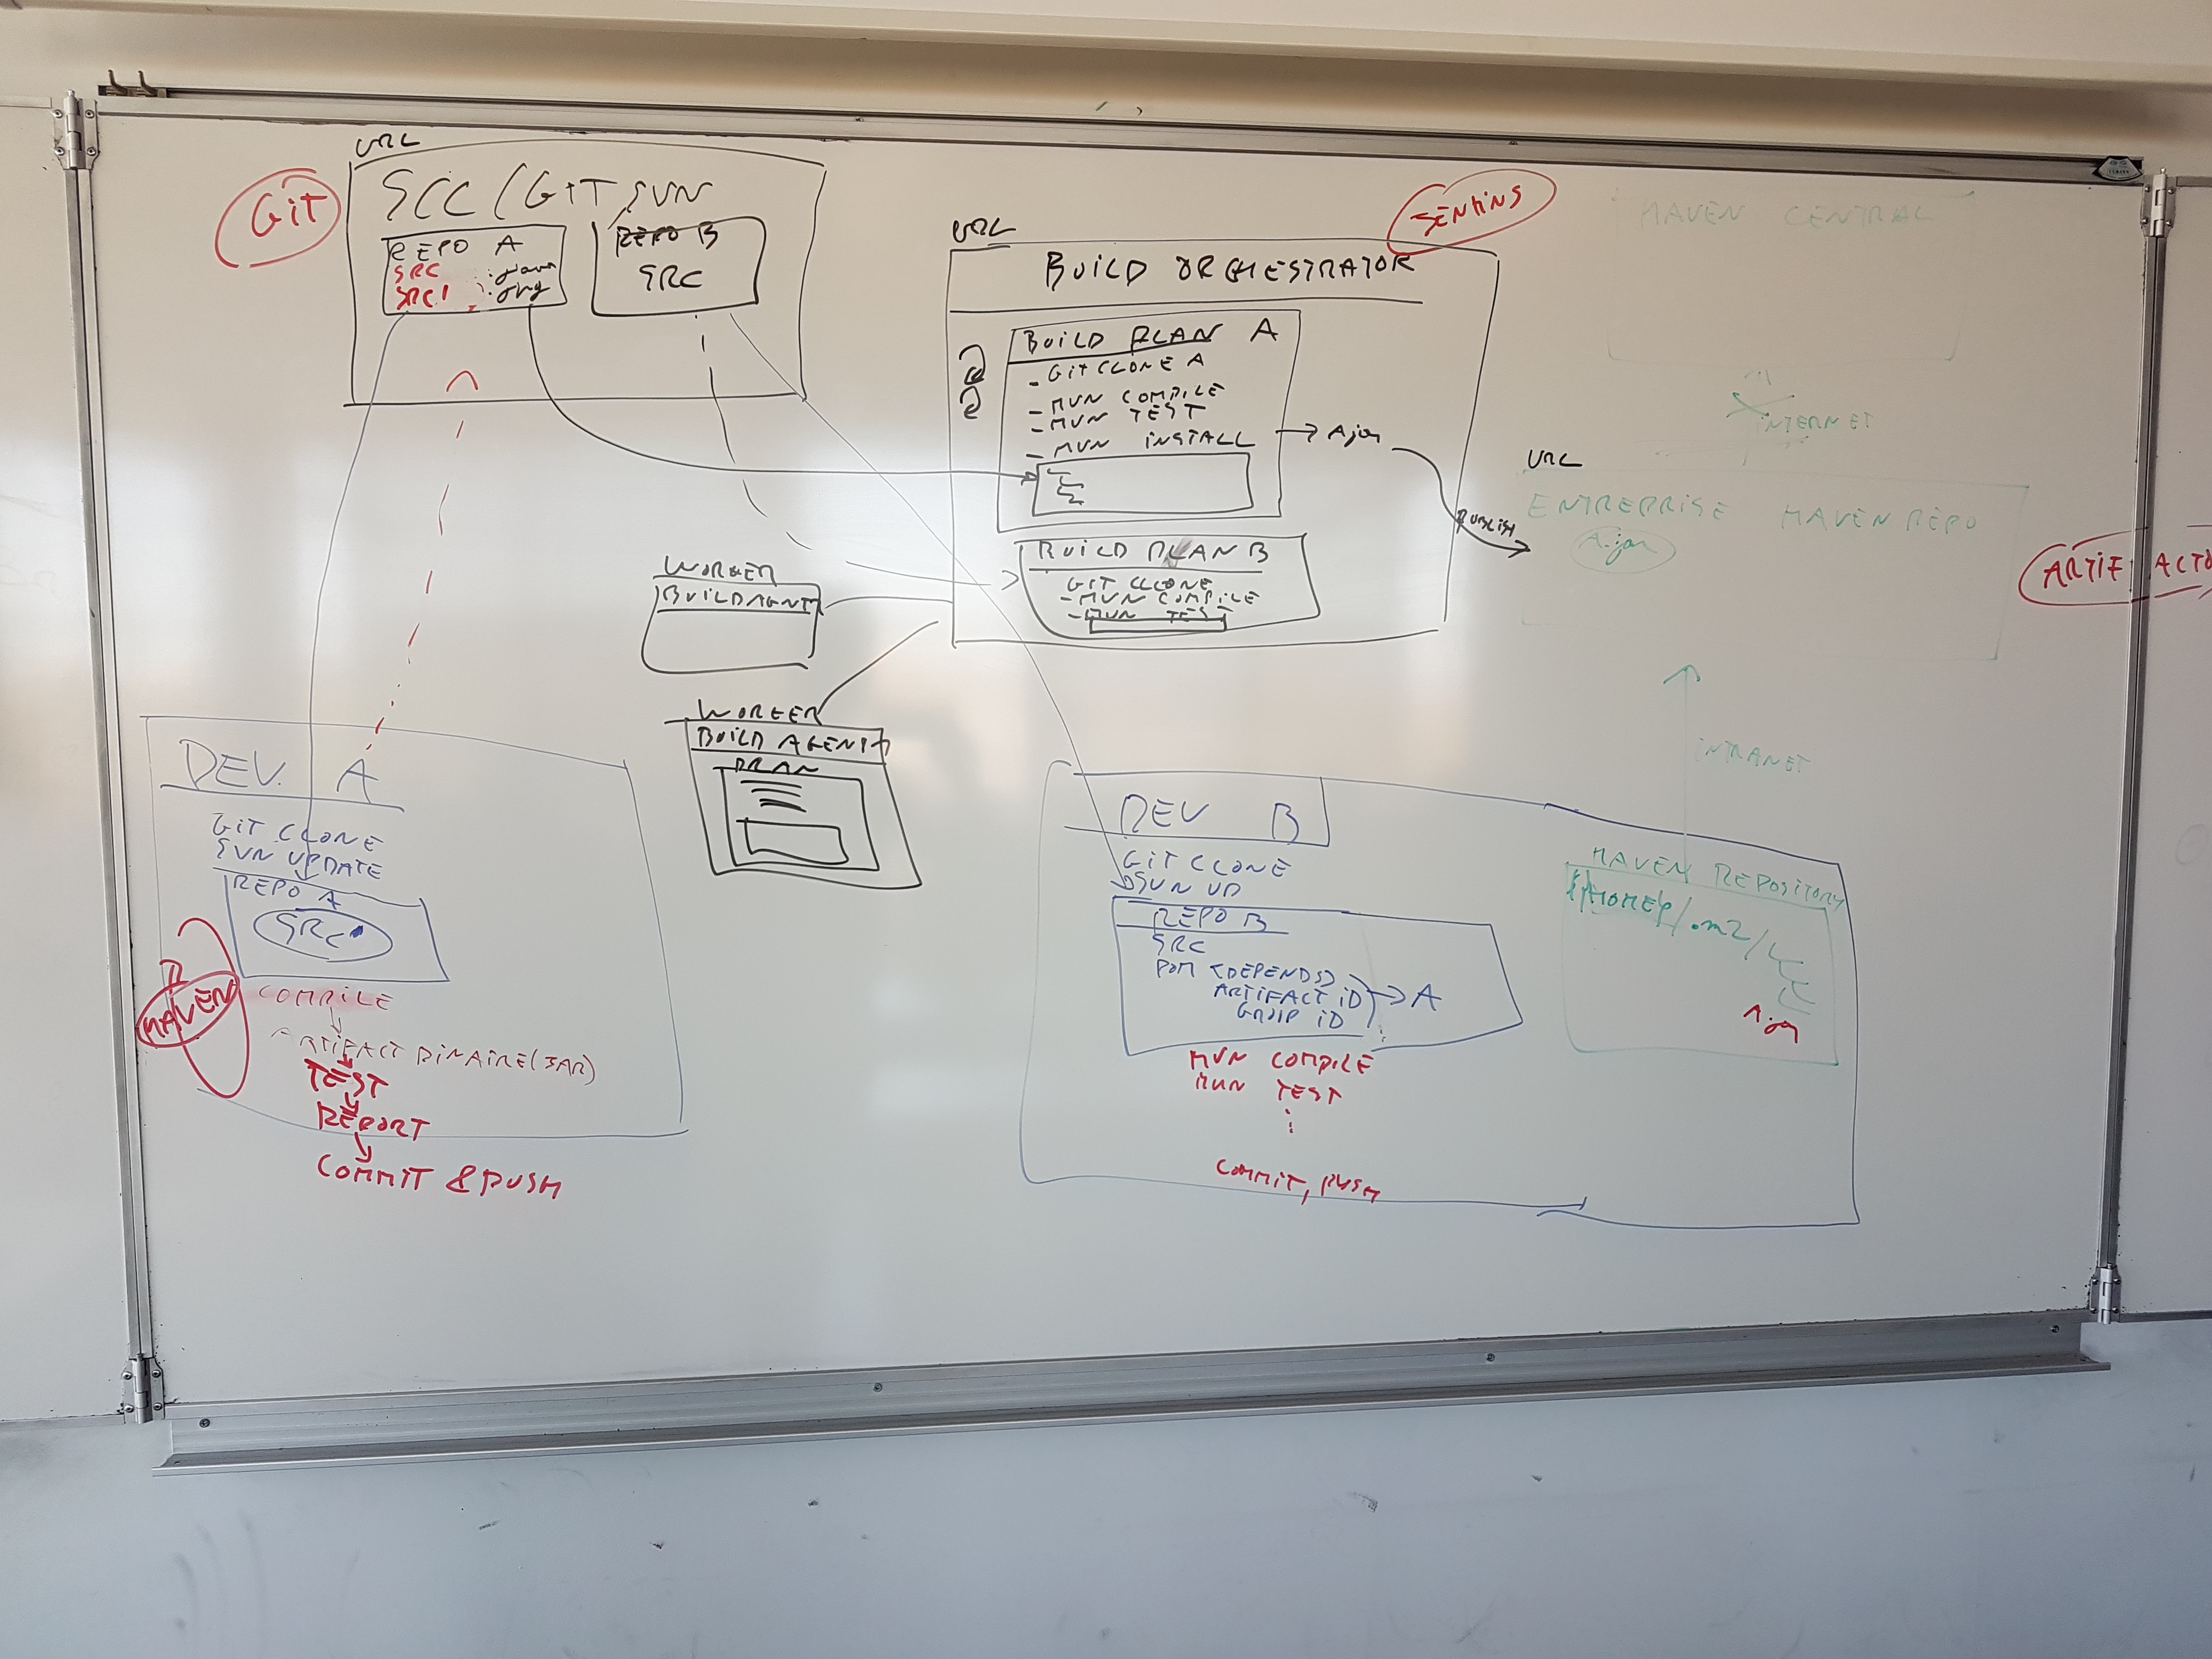 URL
GIT
SCC / GIT SVN
REPO A
SRC
SRC'
REPO B
SRC
URL
JENKINS
BUILD ORCHESTRATOR
BUILD PLAN A
- GIT CLONE A
- MVN COMPILE
- MVN TEST
- MVN INSTALL
→ A.jar
PUBLISH
BUILD PLAN B
GIT CLONE
- MVN COMPILE
- MVN TEST
WORKER
BUILD AGENT
WORKER
BUILD AGENT
PLAN
MAVEN CENTRAL
INTERNET
URL
ENTREPRISE MAVEN REPO
A.jar
ARTIFACTO
INTRANET
DEV. A
GIT CLONE
SVN UPDATE
REPO A
SRC'
MAVEN
COMPILE
ARTIFACT BINAIRE (JAR)
TEST
REPORT
COMMIT & PUSH
DEV B
GIT CLONE
SVN UP
REPO B
SRC
POM <DEPENDS>
ARTIFACT ID
GROUP ID
→ A
MVN COMPILE
MVN TEST
COMMIT, PUSH
MAVEN REPOSITORY
/.m2/
A.jar